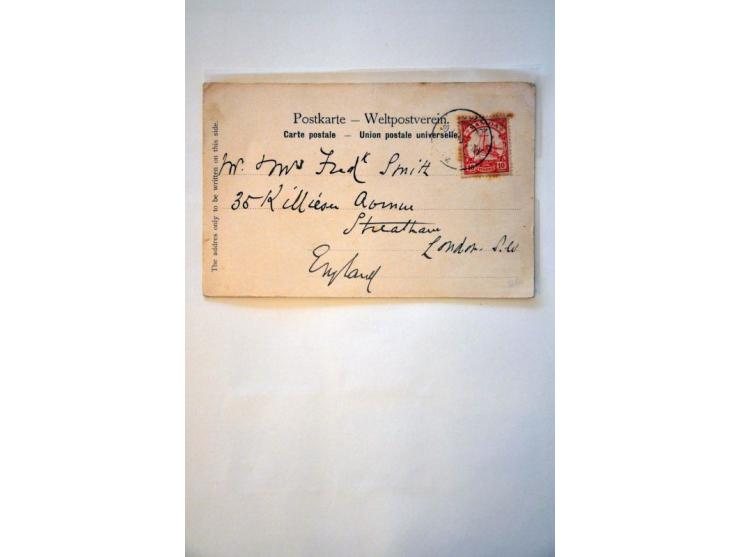 Postkarte — Weltpostverein.
Carte postale — Union postale universelle.
Mr. & Mrs Fredk Smith
35 Killieser Avenue
Streatham
London. S.W
England
The addres only to be written on this side.
10 10